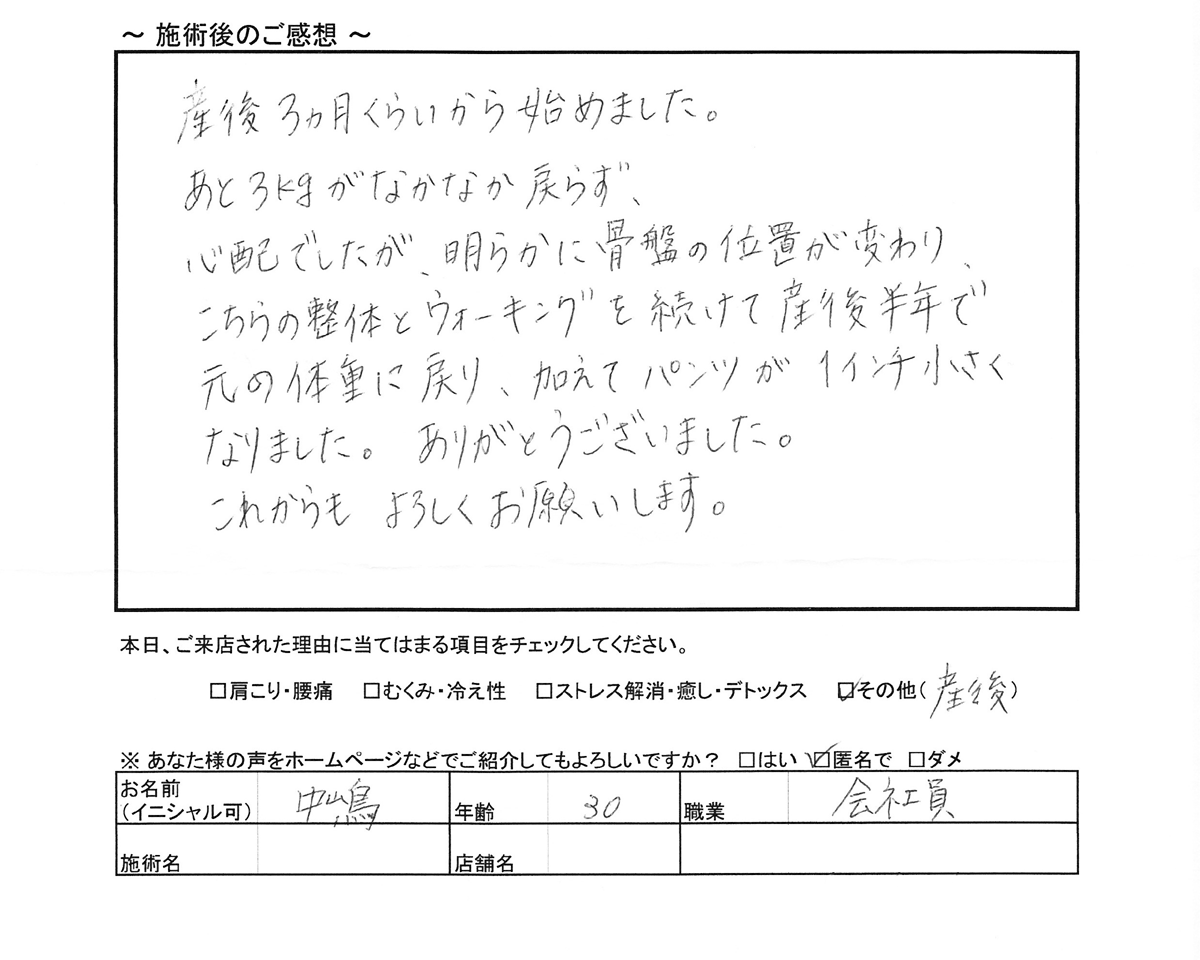 ～ 施術後のご感想 ～
産後3ヵ月くらいから始めました。
あと3kgがなかなか戻らず、
心配でしたが、明らかに骨盤の位置が変わり、
こちらの整体とウォーキングを続けて産後半年で
元の体重に戻り、加えてパンツが1インチ小さく
なりました。 ありがとうございました。
これからも よろしくお願いします。
本日、ご来店された理由に当てはまる項目をチェックしてください。
□肩こり・腰痛 □むくみ・冷え性 □ストレス解消・癒し・デトックス ☑その他(産後)
※ あなた様の声をホームページなどでご紹介してもよろしいですか？ □はい ☑匿名で □ダメ
お名前
(イニシャル可) 中嶋 年齢 30 職業 会社員
施術名 店舗名